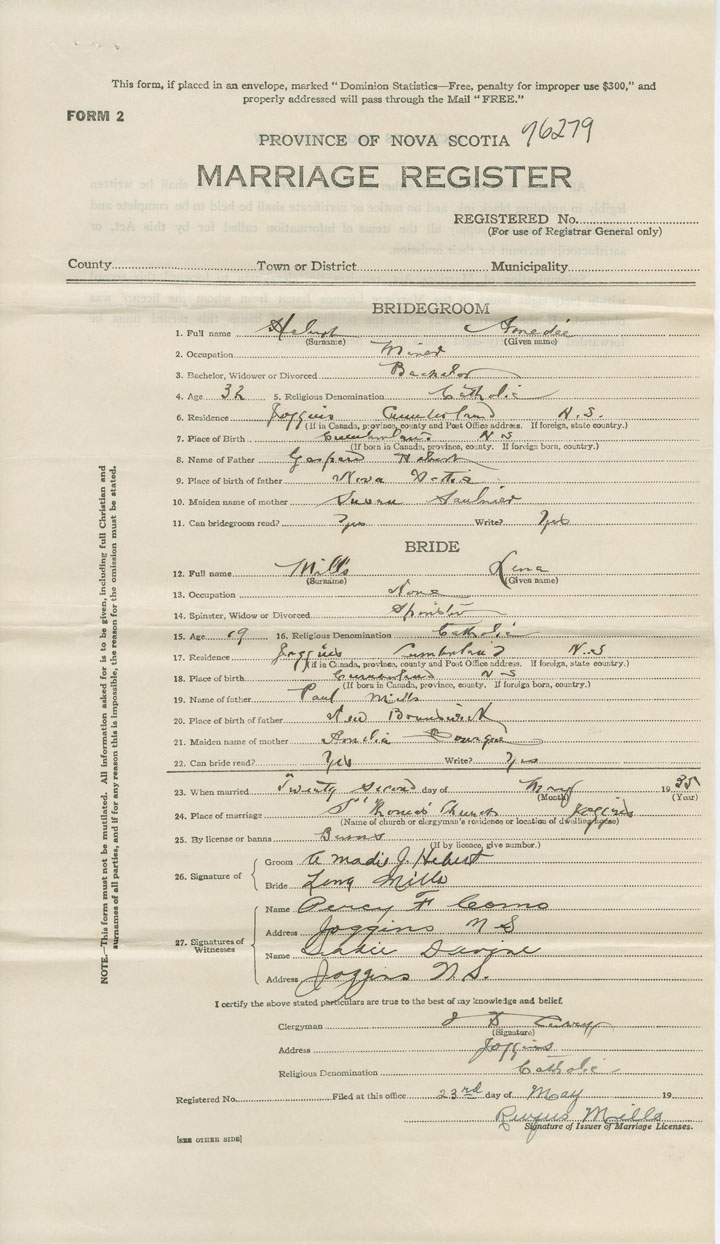 This form, if placed in an envelope, marked "Dominion Statistics—Free, penalty for improper use $300," and
properly addressed will pass through the Mail "FREE."
FORM 2
PROVINCE OF NOVA SCOTIA 76279
MARRIAGE REGISTER
REGISTERED No.
(For use of Registrar General only)
County Town or District Municipality
BRIDEGROOM
1. Full name Hebert Amedie
(Surname) (Given name)
2. Occupation Miner
3. Bachelor, Widower or Divorced Bachelor
4. Age 32 5. Religious Denomination Catholic
6. Residence Joggins Cumberland N.S.
(If in Canada, province, county and Post Office address. If foreign, state country.)
7. Place of Birth Cumberland N S
(If born in Canada, province, county. If foreign born, country.)
8. Name of Father Gaspard Hebert
9. Place of birth of father Nova Scotia
10. Maiden name of mother Susan Saulnier
11. Can bridegroom read? Yes Write? Yes
BRIDE
12. Full name Mills Lena
(Surname) (Given name)
13. Occupation None
14. Spinster, Widow or Divorced Spinster
15. Age 19 16. Religious Denomination Catholic
17. Residence Joggins Cumberland N.S
(If in Canada, province, county and Post Office address. If foreign, state country.)
18. Place of birth Cumberland N S
(If born in Canada, province, county. If foreign born, country.)
19. Name of father Paul Mills
20. Place of birth of father New Brunswick
21. Maiden name of mother Amelia Bourque
22. Can bride read? Yes Write? Yes
23. When married Twenty Second day of May 1935
(Month) (Year)
24. Place of marriage St Thomas' Church Joggins
(Name of church or clergyman's residence or location of dwelling house)
25. By license or banns Banns
(If by licence, give number.)
26. Signature of
Groom Amadie J. Hebert
Bride Lena Mills
27. Signatures of Witnesses
Name Percy F Como
Address Joggins N S
Name Devine
Address Joggins N.S.
I certify the above stated particulars are true to the best of my knowledge and belief.
Clergyman
(Signature)
Address Joggins
Religious Denomination Catholic
Registered No. Filed at this office 23rd day of May 19
Rufus Mills
Signature of Issuer of Marriage Licenses.
[SEE OTHER SIDE]
NOTE.—This form must not be mutilated. All information asked for is to be given, including full Christian and
surnames of all parties, and if for any reason this is impossible, the reason for the omission must be stated.